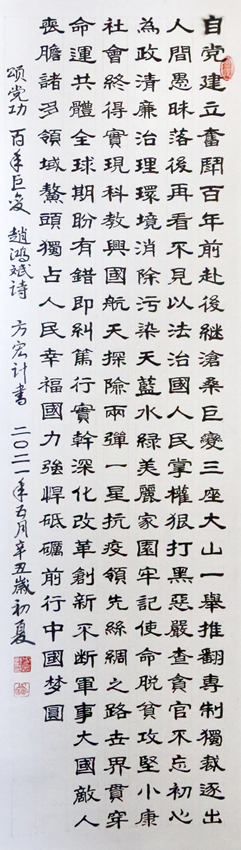 自党建立奮鬪百年前赴後継滄桑巨變三座大山一舉推翻專制獨裁逐出
人間愚昧落後再看不見以法治國人民掌權狠打黑惡嚴查貪官不忘初心
為政清廉治理環境消除污染天藍水緑美麗家園牢記使命脱貧攻堅小康
社會終得實現科教興國航天探險兩彈一星抗疫領先絲綢之路世界貫穿
命運共體全球期盼有錯即糾篤行實幹深化改革創新不断軍事大國敵人
喪膽諸多領域鰲頭獨占人民幸福國力強悍砥礪前行中國梦圓
頌党功 百年巨变 趙鴻斌诗 方宏计書 二〇二一年五月辛丑歲初夏